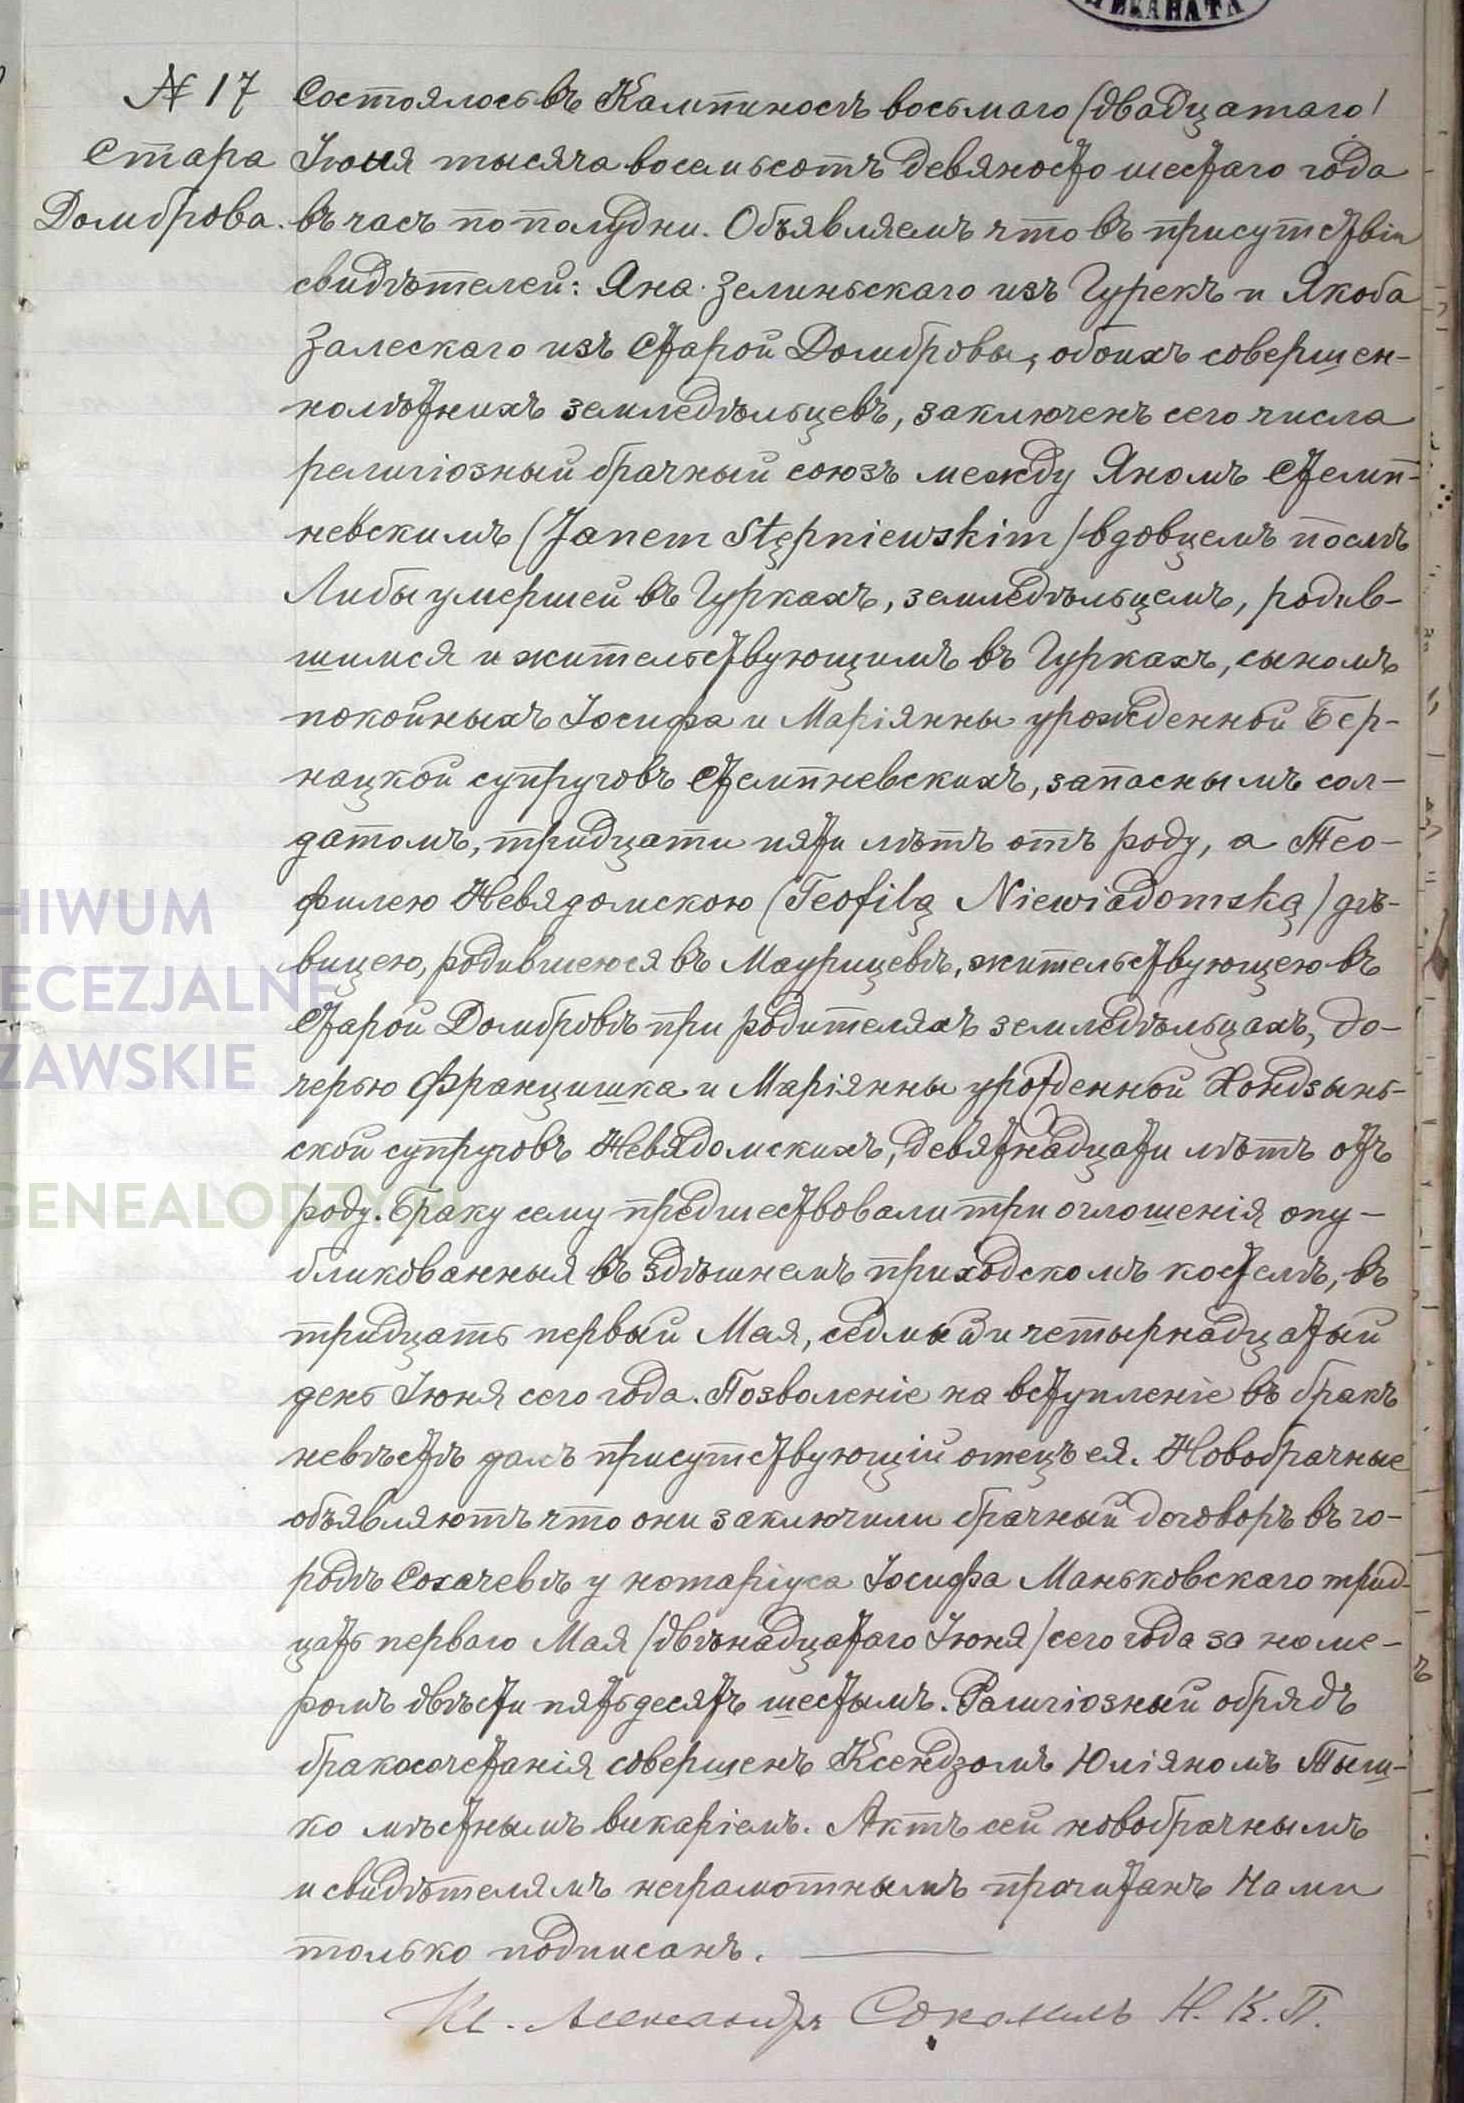 ДЕКАНАТА
№ 17
Стара
Домброва.
Состоялось въ Кампиносѣ восьмаго (двадцатаго)
Іюня тысяча восемьсотъ девяносто шестаго года
въ часъ по полудни. Объявляемъ что въ присутствіи
свидѣтелей: Яна Зелиньскаго изъ Гурекъ и Якоба
Залескаго изъ Старой Домбровы, обоихъ совершен-
нолѣтнихъ земледѣльцевъ, заключенъ сего числа
религіозный брачный союзъ между Яномъ Стемп-
невскимъ (Janem Stępniewskim) вдовцемъ послѣ
Либы умершей въ Гуркахъ, земледѣльцемъ, родив-
шимся и жительствующимъ въ Гуркахъ, сыномъ
покойныхъ Іосифа и Маріянны урожденной Бер-
нацкой супруговъ Стемпневскихъ, запаснымъ сол-
датомъ, тридцати пяти лѣтъ отъ роду, а Тео-
филею Невядомскою (Teofilą Niewiadomską) дѣ-
вицею, родившеюся въ Маурицевѣ, жительствующею въ
Старой Домбровѣ при родителяхъ земледѣльцахъ, до-
черью Францишка и Маріянны урожденной Хондзынь-
ской супруговъ Невядомскихъ, девятнадцати лѣтъ отъ
роду. Браку сему предшествовали три оглошенія опу-
бликованныя въ здѣшнемъ приходскомъ костелѣ, въ
тридцать первый Мая, седмый и четырнадцатый
день Іюня сего года. Позволеніе на вступленіе въ бракъ
невѣстѣ далъ присутствующій отецъ ея. Новобрачные
объявляютъ что они заключили брачный договоръ въ го-
родѣ Сохачевѣ у нотаріуса Іосифа Маньковскаго трид-
цать перваго Мая (двѣнадцатаго Іюня) сего года за номе-
ромъ двѣсти пятьдесятъ шестымъ. Рашгіозный обрядъ
бракосочетанія совершенъ Ксендзомъ Юліяномъ Тыш-
ко мѣстнымъ викаріемъ. Актъ сей новобрачнымъ
и свидѣтелямъ неграмотнымъ прочитанъ Нами
только подписанъ.
Кс. Александръ Н. К. П.
HIWUM
ECEZJALNE
ZAWSKIE
GENEALODZY.PL